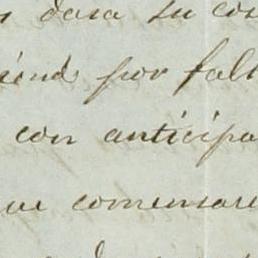 dara su cos
siend por falt
con anticipa
ue comensare